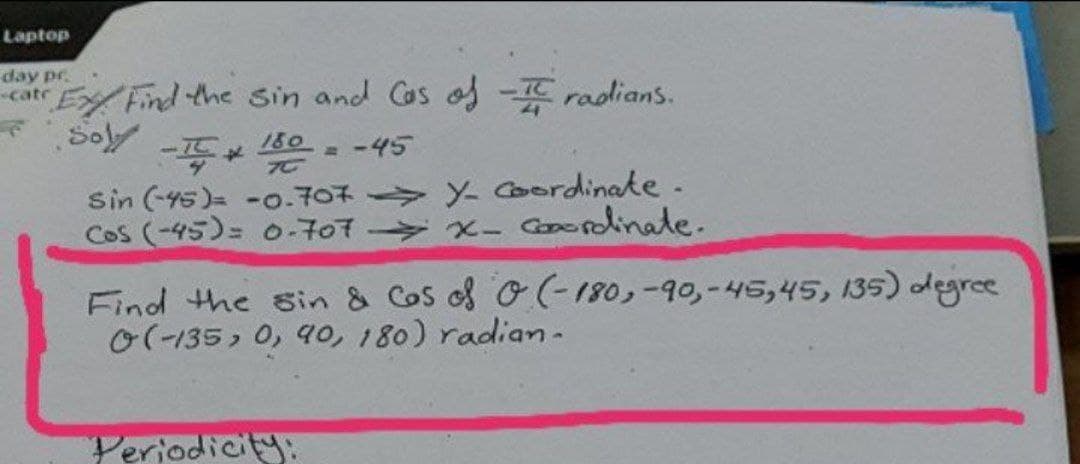 Laptop
day pr.
-catr
Ex/ Find the sin and Cos of -π/4 radians.
Sol/ -π/4 * 180/π = -45
sin (-45) = -0.707 ⇒ y- Coordinate.
Cos (-45) = 0.707 → x- Coordinate.
Find the sin & Cos of θ (-180, -90, -45, 45, 135) degree
θ(-135, 0, 90, 180) radian.
Periodicity: